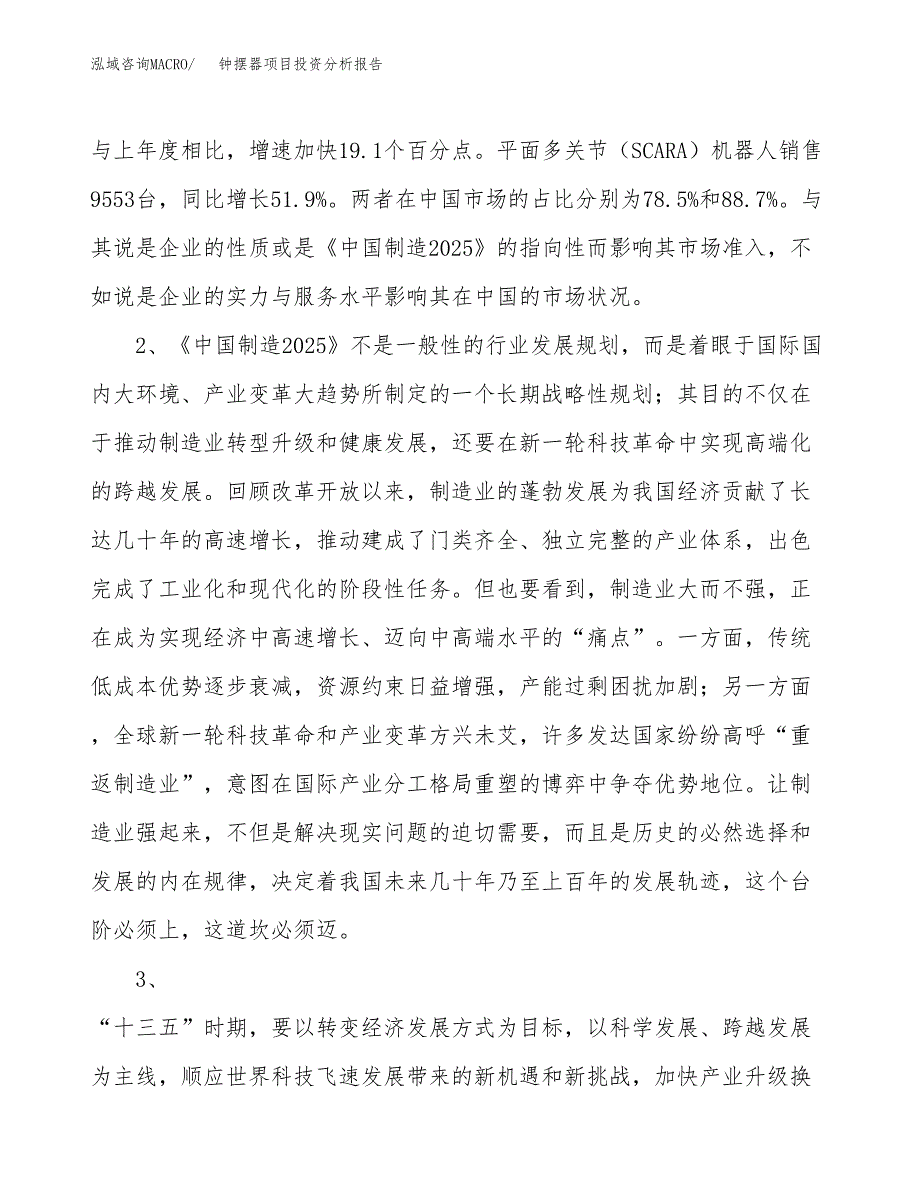 泓域咨询MACRO/ 钟摆器项目投资分析报告
与上年度相比，增速加快19.1个百分点。平面多关节（SCARA）机器人销售
9553台，同比增长51.9%。两者在中国市场的占比分别为78.5%和88.7%。与
其说是企业的性质或是《中国制造2025》的指向性而影响其市场准入，不
如说是企业的实力与服务水平影响其在中国的市场状况。
2、《中国制造2025》不是一般性的行业发展规划，而是着眼于国际国
内大环境、产业变革大趋势所制定的一个长期战略性规划；其目的不仅在
于推动制造业转型升级和健康发展，还要在新一轮科技革命中实现高端化
的跨越发展。回顾改革开放以来，制造业的蓬勃发展为我国经济贡献了长
达几十年的高速增长，推动建成了门类齐全、独立完整的产业体系，出色
完成了工业化和现代化的阶段性任务。但也要看到，制造业大而不强，正
在成为实现经济中高速增长、迈向中高端水平的“痛点”。一方面，传统
低成本优势逐步衰减，资源约束日益增强，产能过剩困扰加剧；另一方面
，全球新一轮科技革命和产业变革方兴未艾，许多发达国家纷纷高呼“重
返制造业”，意图在国际产业分工格局重塑的博弈中争夺优势地位。让制
造业强起来，不但是解决现实问题的迫切需要，而且是历史的必然选择和
发展的内在规律，决定着我国未来几十年乃至上百年的发展轨迹，这个台
阶必须上，这道坎必须迈。
3、
“十三五”时期，要以转变经济发展方式为目标，以科学发展、跨越发展
为主线，顺应世界科技飞速发展带来的新机遇和新挑战，加快产业升级换